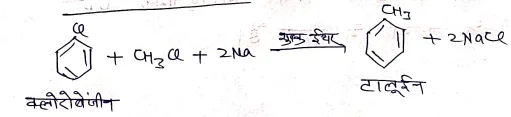 Cl + CH3Cl + 2Na शुष्क ईथर CH3 + 2NaCl
क्लोरोबेंजीन टालूईन